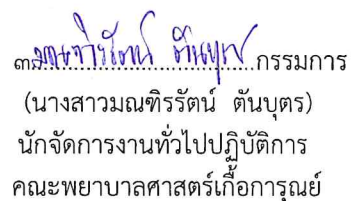 มณฑิรรัตน์ ตันบุตร กรรมการ
(นางสาวมณฑิรรัตน์ ตันบุตร)
นักจัดการงานทั่วไปปฏิบัติการ
คณะพยาบาลศาสตร์เกื้อการุณย์